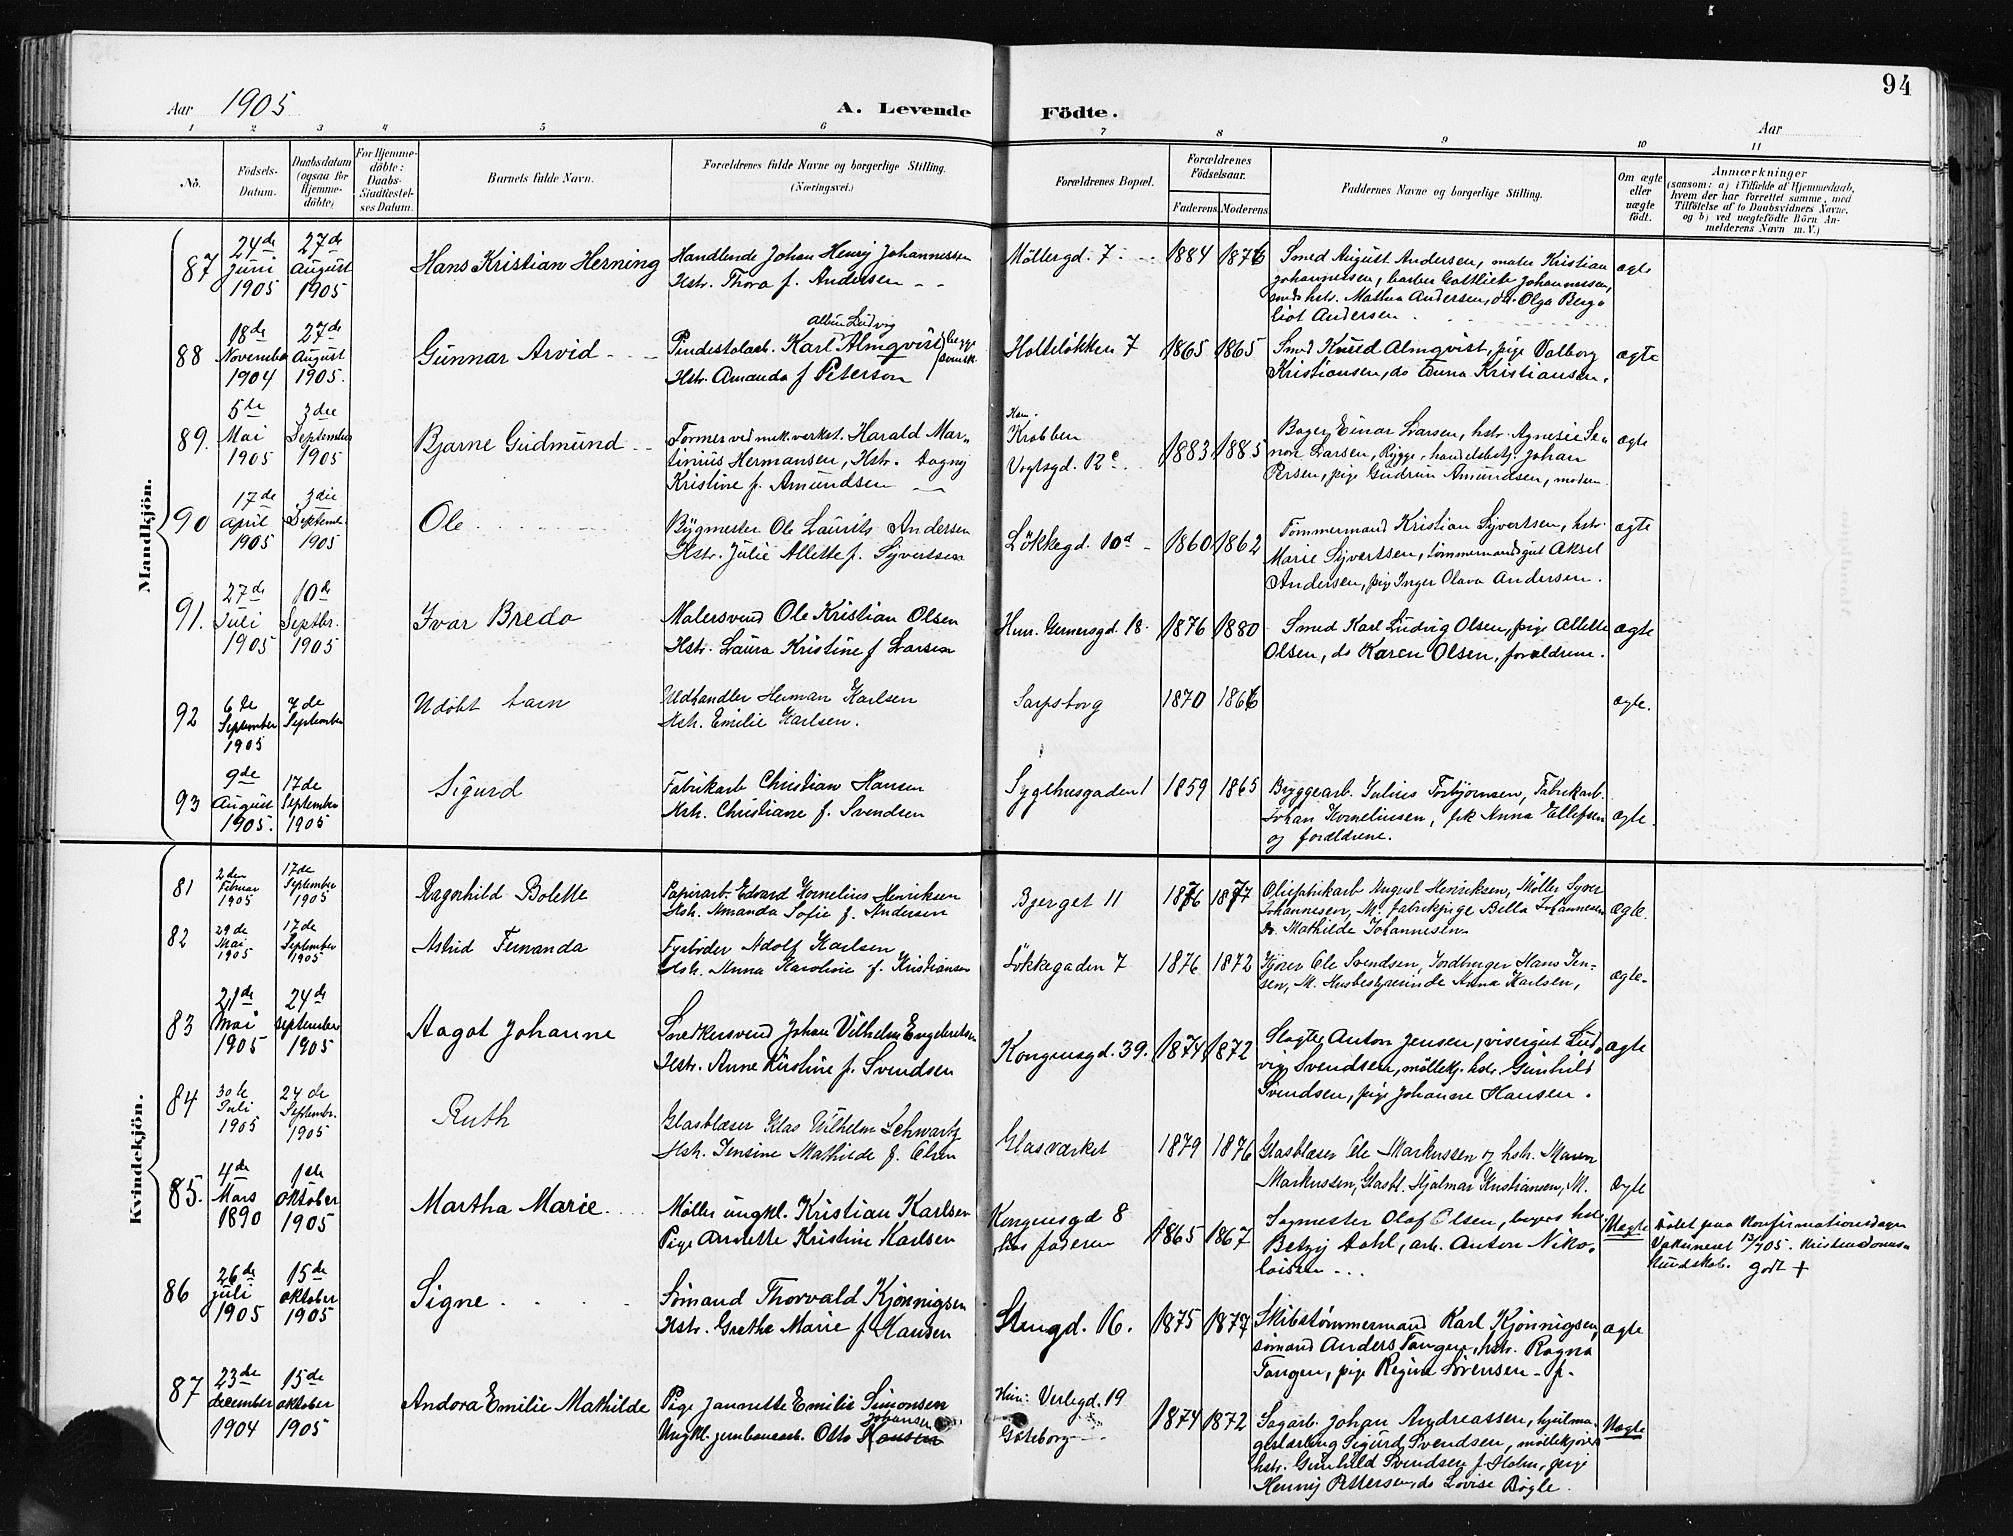 94
Aar 1905
A. Levende Födte.
Aar
1 2 3 4 5 6 7 8 9 10 11
No.
Födsels-
Datum.
Daabsdatum
(ogsaa for
Hjemme-
döbte)
For Hjemme-
döbte:
Daabs-
Stadfæstel-
ses Datum.
Barnets fulde Navn.
Forældrenes fulde Navne og borgerlige Stilling.
(Næringsvei.)
Forældrenes Bopæl.
Forældrenes
Födselsaar.
Faderens. Moderens.
Faddernes Navne og borgerlige Stilling.
Om ægte
eller
uægte
födt.
Anmærkninger
(saasom: a) i Tilfælde af Hjemmedaab,
hvem der har forrettet samme, med
Tilföielse af to Daabsvidners Navne,
og b) ved uægtefödte Börn An-
melderens Navn m. V.)
Mandkjön.
87
24de
Juni
1905
27de
August
1905
Hans Kristian Herning
Handlende Johan Henry Johannessen
Hstr. Thora f. Andersen
Möllergd. 7
1884 1876
Smed August Andersen, maler Kristian
Johannessen, barber Gottlieb Johannessen,
smeds hstr. Mathea Andersen, do. Olga Berg-
liot Andersen
ægte
88
18de
November
1904
27de
August
1905.
Gunnar Arvid
Albin Ludvig
Pindestolarb. Karl Almqvist begge
svensk.
Hstr. Amanda f Peterson
Holtelökken 7
1865 1865
Smed Knud Almqvist, pige Valborg
Kristiansen, do Anna Kristiansen.
ægte
89.
5te
Mai
1905
3die
September
1905
Bjarne Gudmund
Former ved mek. verkst. Harald Mar-
tinius Hermansen, Hstr. Dagny
Kristine f. Amundsen
Krabben
Vogtsgd. 12c
1883 1885
Bager Einar Larsen, hstr. Agnesie Le-
nore Larsen, Rygge, handelsbetj. Johan
Persen, pige Gudrun Amundsen, moderen
ægte
90
17de
April
1905
3die
Septemb.
1905
Ole
Bygmester Ole Laurits Andersen
Hstr. Julie Alette f. Syvertsen
Lökkegd. 10d
1860 1862
Tömmermand Kristian Syvertsen, hstr.
Marie Syvertsen, tömmermandsgut Aksel
Andersen, pige Inger Olava Andersen.
ægte
91.
27de
Juli
1905
10de
Septbr.
1905
Ivar Bredo
Malersvend Ole Kristian Olsen
Hstr. Laura Kristine f Larsen
Hen. Gernersgd. 18
1876 1880
Smed Karl Ludvig Olsen, pige Alette
Olsen, do Karen Olsen, forældrene.
ægte
92
6te
September
1905
7de
September
Udöbt barn
Vedhandler Herman Karlsen
Hstr. Emilie Karlsen.
Sarpsborg
1870 1866
ægte.
93
9de
August
1905.
17de
September
1905
Sigurd
Fabrikarb Christian Hansen
Hstr. Christiane f. Svendsen
Sygehusgaden 1
1859 1865
Bryggearb. Julius Torbjørnsen, Fabrikarb.
Johan Korneliusen, frk Anna Ellefsen
og forældrene.
ægte.
Kvindekjön.
81
2den
Februar
1905
17de
September
1905
Ragnhild Bolette
Papirarb. Edvard Kornelius Henriksen
Hstr. Amanda Sofie f. Andersen
Bjerget 11
1876 1874
Oliefabrikarb August Henriksen, Møller Syver
Johannesen, M. fabrikpige Bella Johannesen
Do. Mathilde Johannesen
ægte.
82
29de
Mai
1905
17de
September
1905
Astrid Fernanda
Fyrbøder Adolf Karlsen
Hstr. Anna Karoline f. Kristiansen
Løkkegaden 7
1876 1872
Kjører Ole Svendsen, Jordbruger Hans Jen-
sen, M. Husbestyrerinde Anna Karlsen,
ægte.
83
21de
Mai
1905
24de
september
1905
Aagot Johanne
Snedkersvend Johan Vilhelm Engebretsen
Hstr. Anne Kirstine f. Svendsen
Kongensgd. 39.
1874 1872
Slagter Anton Jensen, visergut Lud-
vig Svendsen, møllekj. hstr. Gunhild
Svendsen, pige Johanne Hansen.
ægte
84
30te
Juli
1905
24de
Septembr.
1905
Ruth
Glasblæser Klas Wilhelm Schwartz
Hstr. Jensine Mathilde f. Olsen
Glasværket
1879 1876
Glasblæser Ole Markussen og hstr. Maren
Markussen, Glasbl. Hjalmar Kristiansen, M.
ægte
85.
4de
Mars
1890
1ste
oktober
1905
Martha Marie
Møller ungkl. Kristian Karlsen
Pige Annette Kristine Karlsen
Kongensgd 8
hos faderen
1865 1867
Sagmester Olaf Olsen, bagers hstr
Betzy Dahl, arb. Anton Niko-
laisen
Uægte
Döbt paa Konfirmationsdagen
Vaksineret 12/7 05. Kristendoms-
kundskab. godt +
86
26de
juli
1905
15de
oktober
1905
Signe
Sømand Thorvald Kjønnigsen
Hstr. Grethe Marie f Hansen
Stengd. 16.
1875 1877
Skibstømmermand Karl Kjønnigsen,
sømand Anders Tangen, hstr. Ragna
Tangen, pige Regine Sørensen
ægte
87
23de
december
1904
15de
oktober
1905
Andora Emilie Mathilde
Pige Jannette Emilie Simonsen
Johansen
Ungkl. jernbanearb. Otto Hansen
Hun: Verlegd. 19
Gøteborg
1874 1872
Sagarb. Johan Andreassen, hjulma-
gerlærling Sigurd Svendsen, møllekjøres
hstr. Gunhild Svendsen f. Holm, pige
Henny Pettersen, do Lovise Bøgle.
Uægte